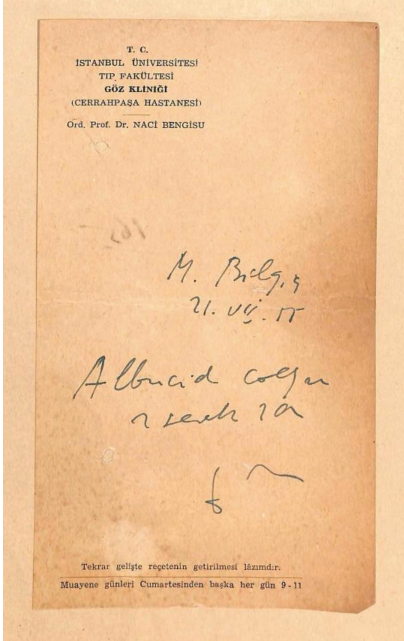 T. C.
İSTANBUL ÜNİVERSİTESİ
TIP FAKÜLTESİ
GÖZ KLİNİĞİ
(CERRAHPAŞA HASTANESİ)
Ord. Prof. Dr. NACİ BENGİSU
M.
21. VII. 55
Albucid
Tekrar gelişte reçetenin getirilmesi lâzımdır.
Muayene günleri Cumartesinden başka her gün 9-11